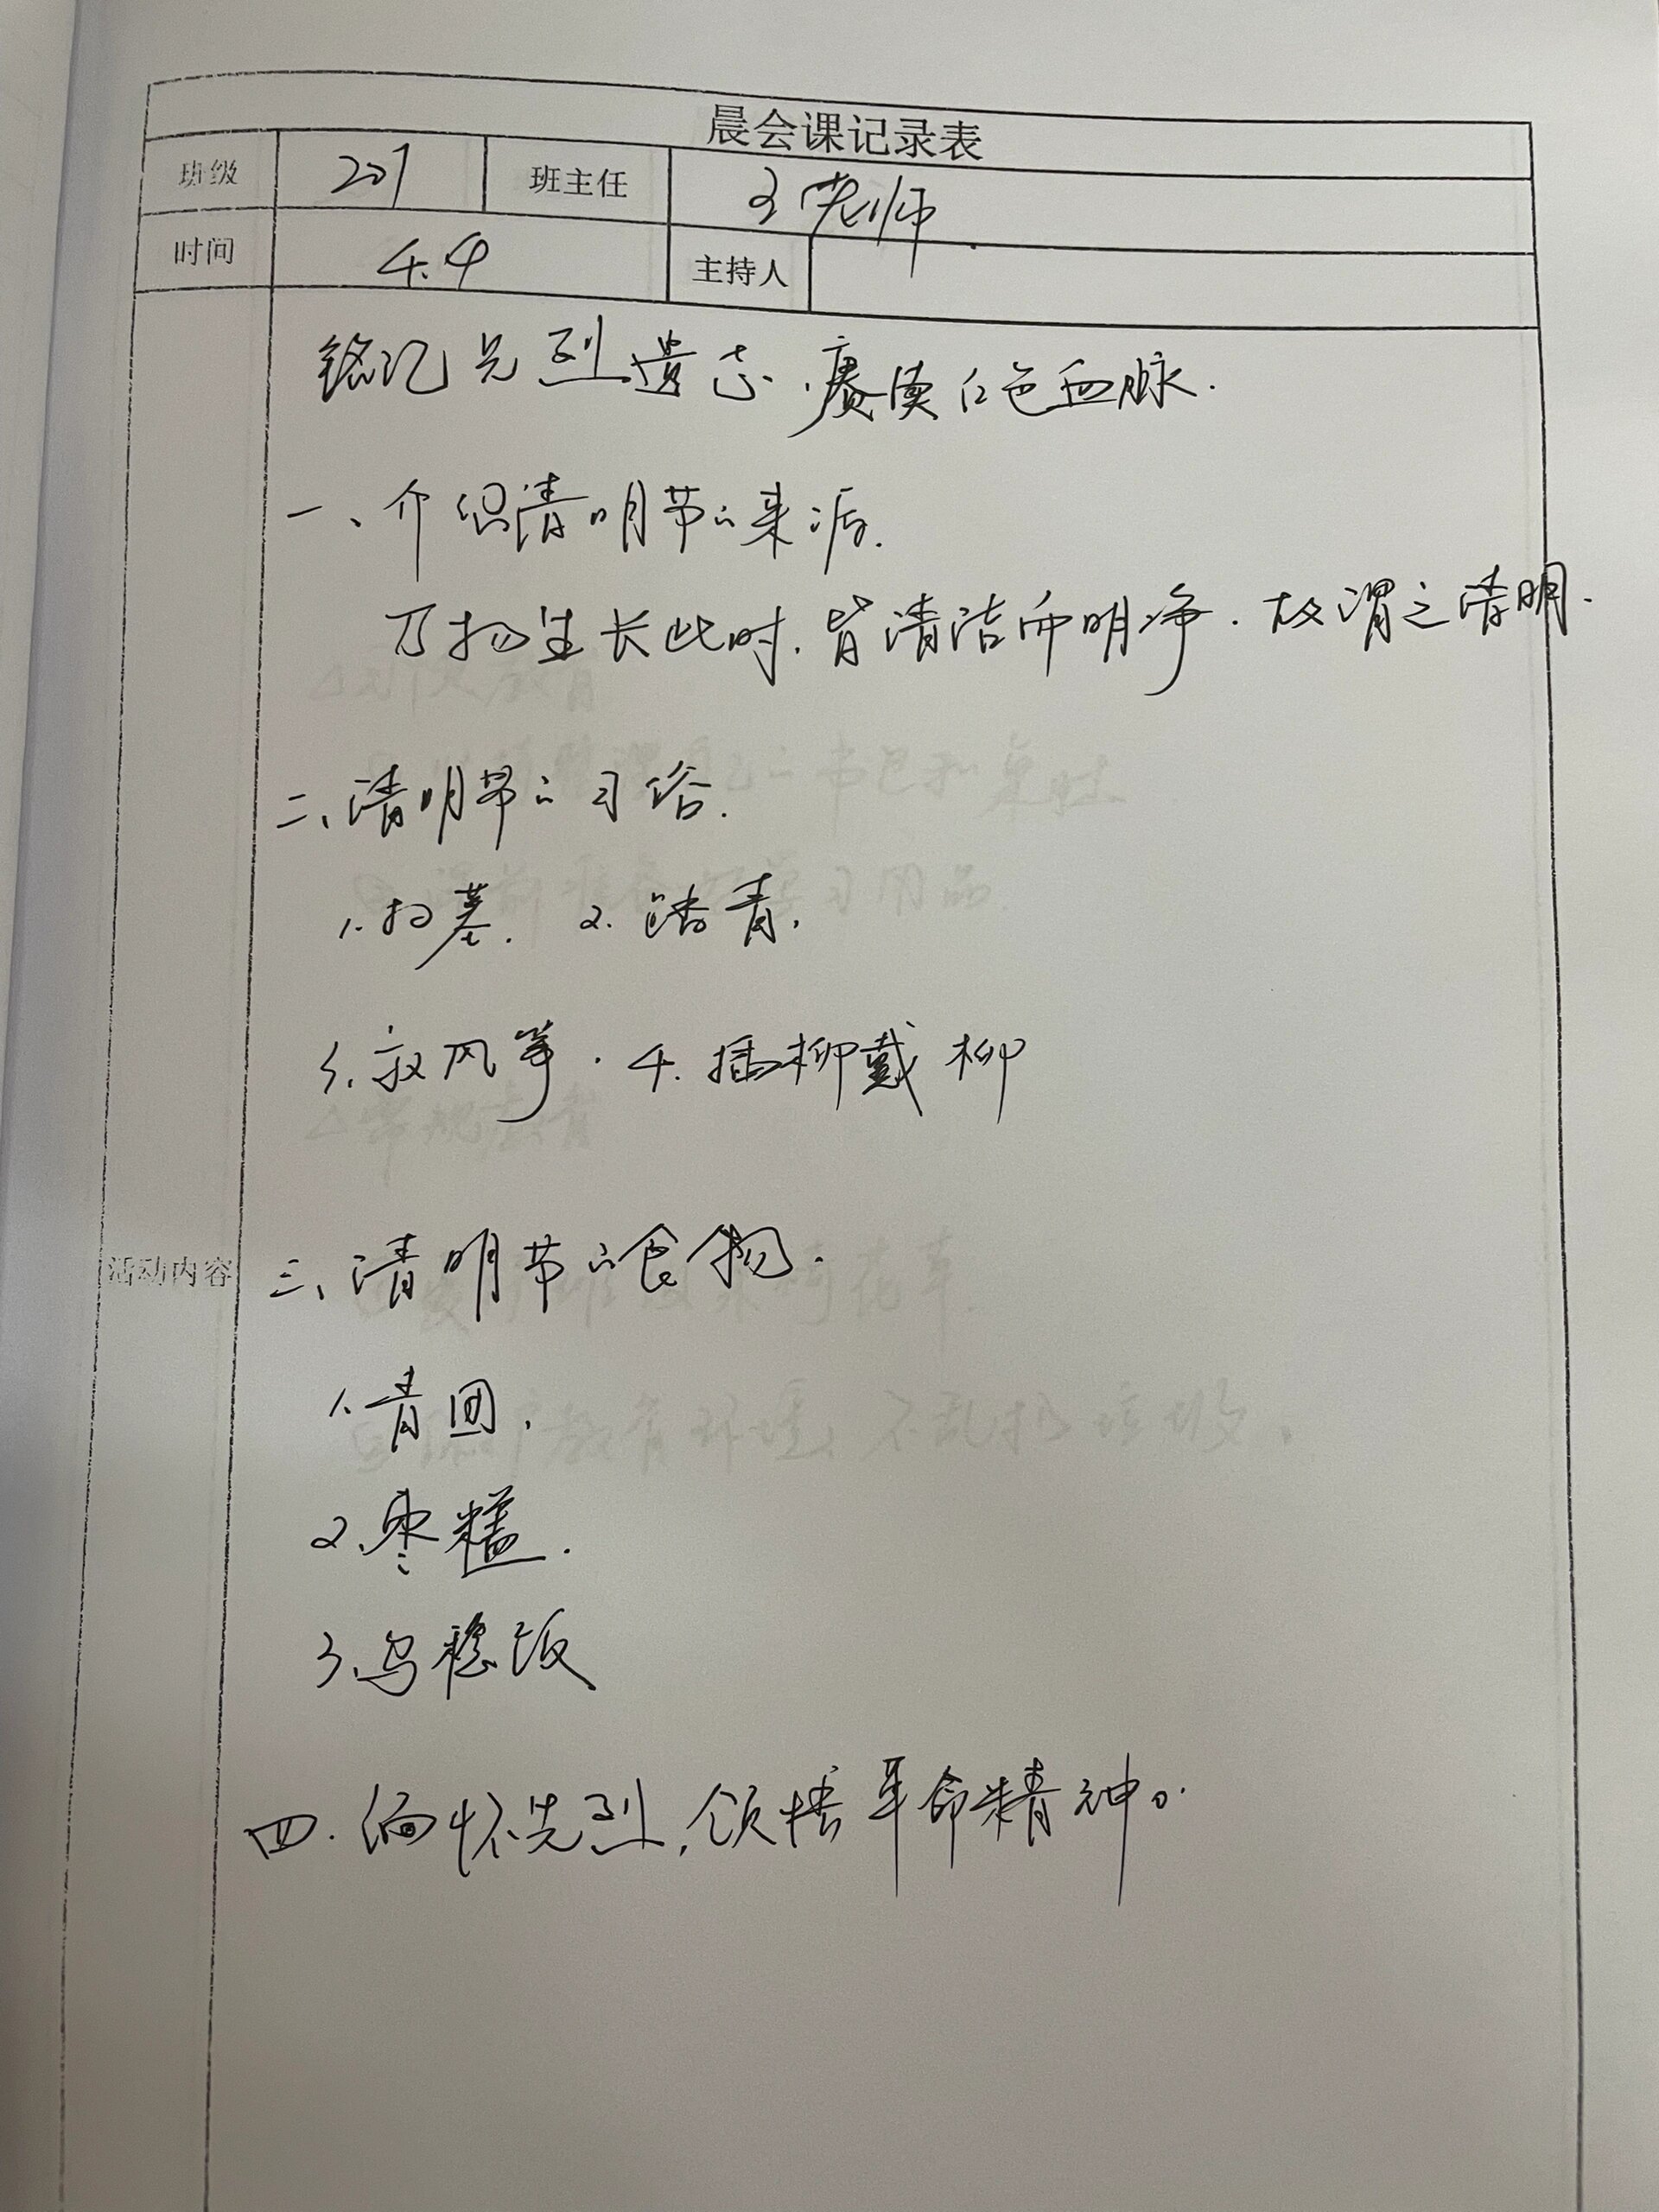 晨会课记录表
班级 201 班主任 王老师
时间 4.4 主持人
铭记先烈遗志,赓续红色血脉.
一、介绍清明节的来源.
万物生长此时,皆清洁而明净.故谓之清明.
二、清明节的习俗.
1.扫墓. 2.踏青,
3.放风筝. 4.插柳戴柳
活动内容 三、清明节的食物.
1.青团,
2.枣糕.
3.乌稔饭
四.缅怀先烈,领悟革命精神。